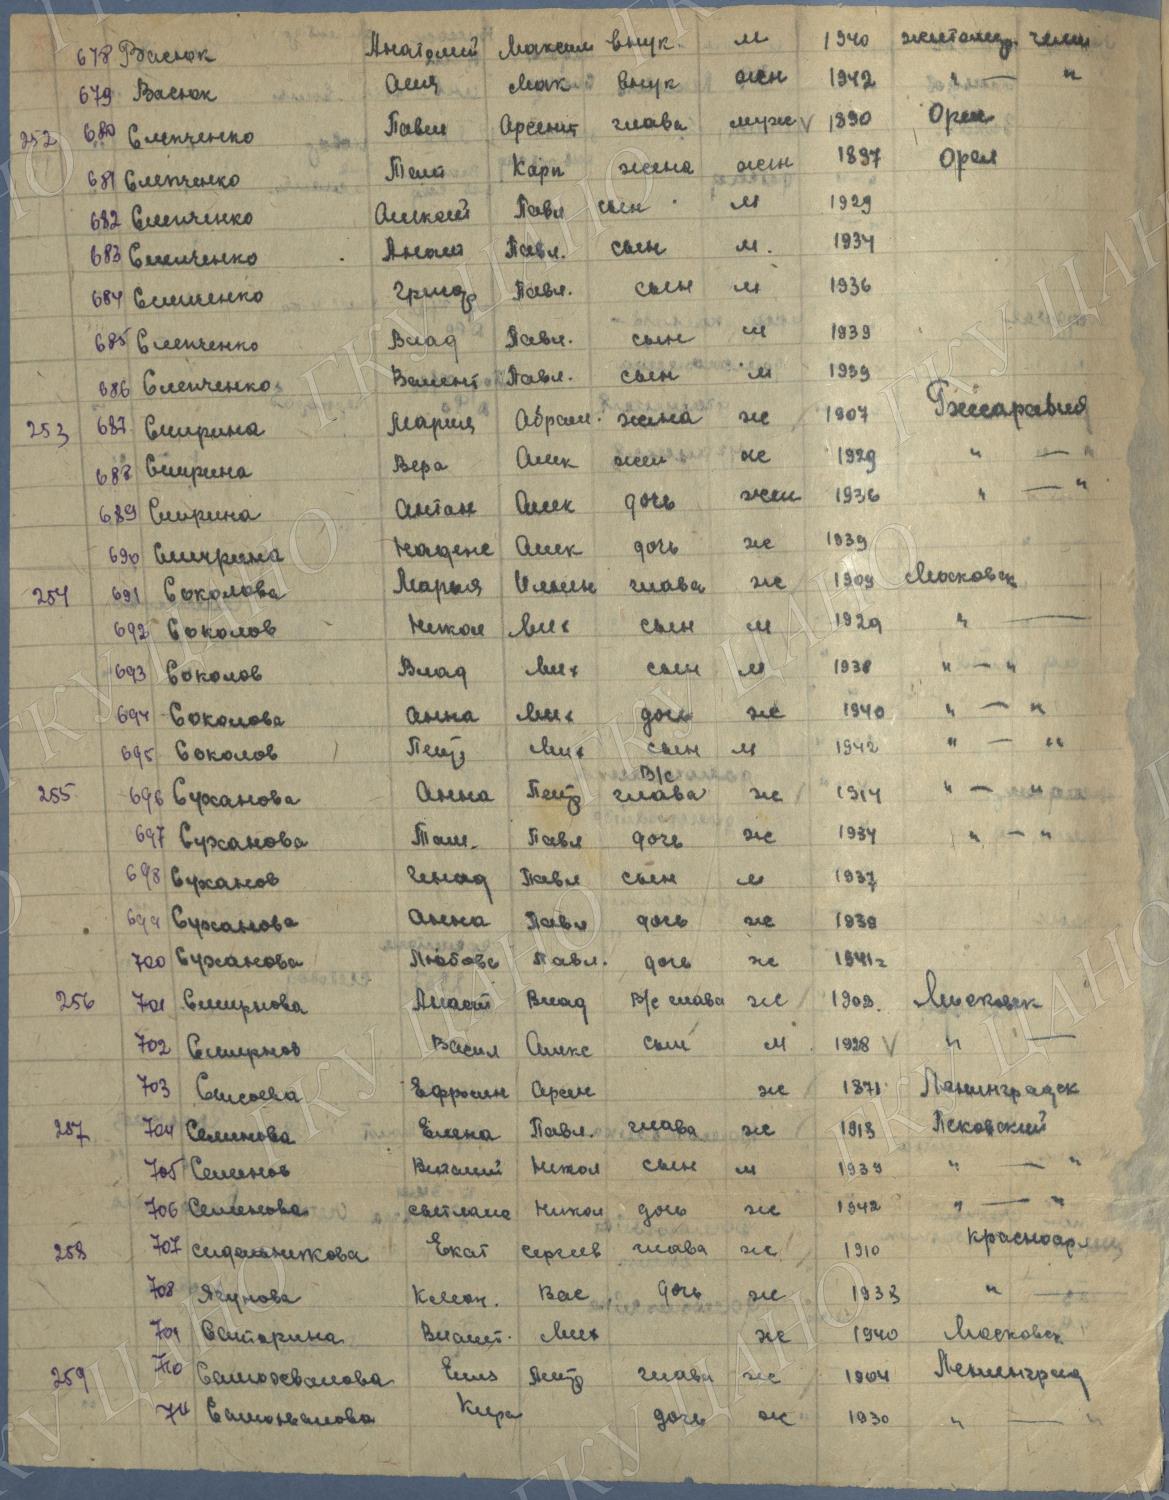 678 Васюк Анатолий Максим внук м 1940 житомир.
679 Васюк мак внук жен 1942 " — "
252 680 Слепченко Павел Арсент глава муж V 1890 Орел
681 Слепченко Карп жена жен 1897 Орел
682 Слепченко Алексей Павл сын м 1929
683 Слепченко Анат Павл. сын м. 1934
684 Слепченко Григор Павл. сын м 1936
685 Слепченко Влад Павл. сын м 1939
686 Слепченко Валент Павл. сын м 1939
253 687 Смирина Мария Абрам. жена ж 1907
688 Смирина Вера Алек жен ж 1929 " — "
689 Смирина Антон Алек дочь жен 1936 " — "
690 Смирина Надежс Алек дочь ж 1939
254 691 Соколова Марья Ильин глава ж 1909 Московск
692 Соколов Никол Мих сын м 1929 " —
693 Соколов Влад Мих сын м 1938 " — "
694 Соколова Анна Мих дочь ж 1940 " — "
695 Соколов Петр Мих сын м 1942 " — "
255 696 Суханова Анна Петр В/с глава ж 1914 " — "
697 Суханова Там. Павл дочь ж 1934 " — "
698 Суханов Генад Павл сын м 1937
699 Суханова Анна Павл дочь ж 1939
700 Суханова Любовь Павл. дочь ж 1941г
256 701 Смирнова Анаст Влад В/с глава ж 1909. Московск
702 Смирнов Васил Алекс сын м 1928 V " —
703 Сысоева Ефросин Арсен ж 1871 Ленинградск
257 704 Семенова Елена Павл. глава ж 1913 Псковский
705 Семенов Виталий Никол сын м 1939 " — "
706 Семенова светлана Никол дочь ж 1942 " — "
258 707 сидельникова Екат сергеев глава ж 1910 красноар
708 Ягунова Клеон. Вас дочь ж 1933 " —
709 Сатарина Виолет. Мих ж 1940 Московск
259 710 Самохвалова Елиз Петр глава ж 1904 Ленинград
711 Самохвалова Кира дочь ж 1930 " — "
ГКУ ЦАНО